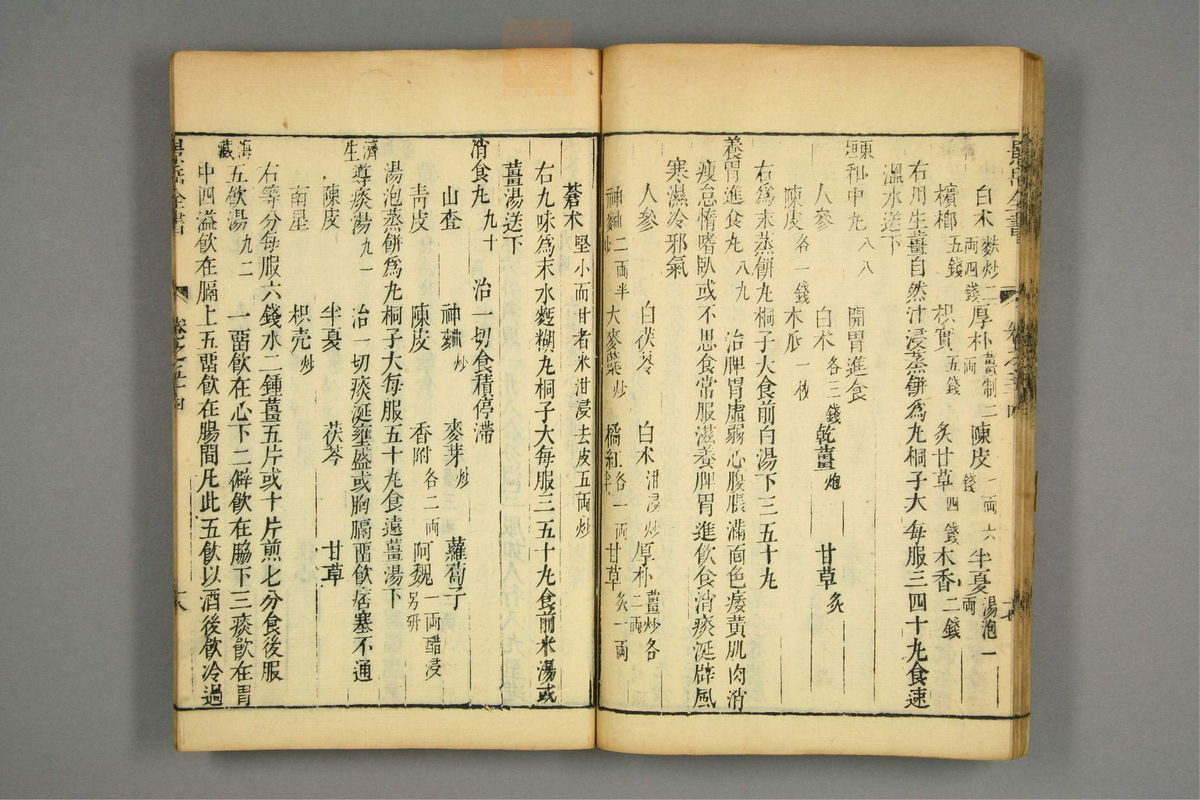 白朮麩炒二兩四錢厚朴薑制二兩陳皮一兩六錢半夏湯泡一兩
檳榔五錢枳實五錢炙甘草四錢木香二錢
右用生薑自然汁浸蒸餅爲丸桐子大每服三四十丸食遠
溫水送下
和中丸八八 開胃進食
人參 白朮各三錢乾薑炮 甘草炙
陳皮各一錢木瓜一枚
右爲末蒸餅丸桐子大食前白湯下三五十丸
養胃進食丸八九 治脾胃虛弱心腹脹滿面色痿黃肌肉消
瘦怠惰嗜臥或不思食常服滋養脾胃進飲食消痰涎辟風
寒濕冷邪氣
人參 白茯苓 白朮泔浸炒厚朴薑炒各二兩
神麯二兩半炒大麥蘗炒 橘紅各一兩半甘草炙一兩
蒼朮堅小而甘者米泔浸去皮五兩炒
右九味爲末水麪糊丸桐子大每服三五十丸食前米湯或
薑湯送下
消食丸九十 治一切食積停滯
山查 神麯炒 麥芽炒 蘿蔔子
青皮 陳皮 香附各二兩 阿魏一兩醋浸另研
湯泡蒸餅爲丸桐子大每服五十丸食遠薑湯下
濟生導痰湯九一 治一切痰涎壅盛或胸膈畱飲痞塞不通
陳皮 半夏 茯苓 甘草
南星 枳壳炒
右等分每服六錢水二鍾薑五片或十片煎七分食後服
海藏五飲湯九二 一畱飲在心下二僻飲在脇下三痰飲在胃
中四溢飲在膈上五畱飲在腸間凡此五飲以酒後飲冷過
景岳全書 卷之五十四 十八